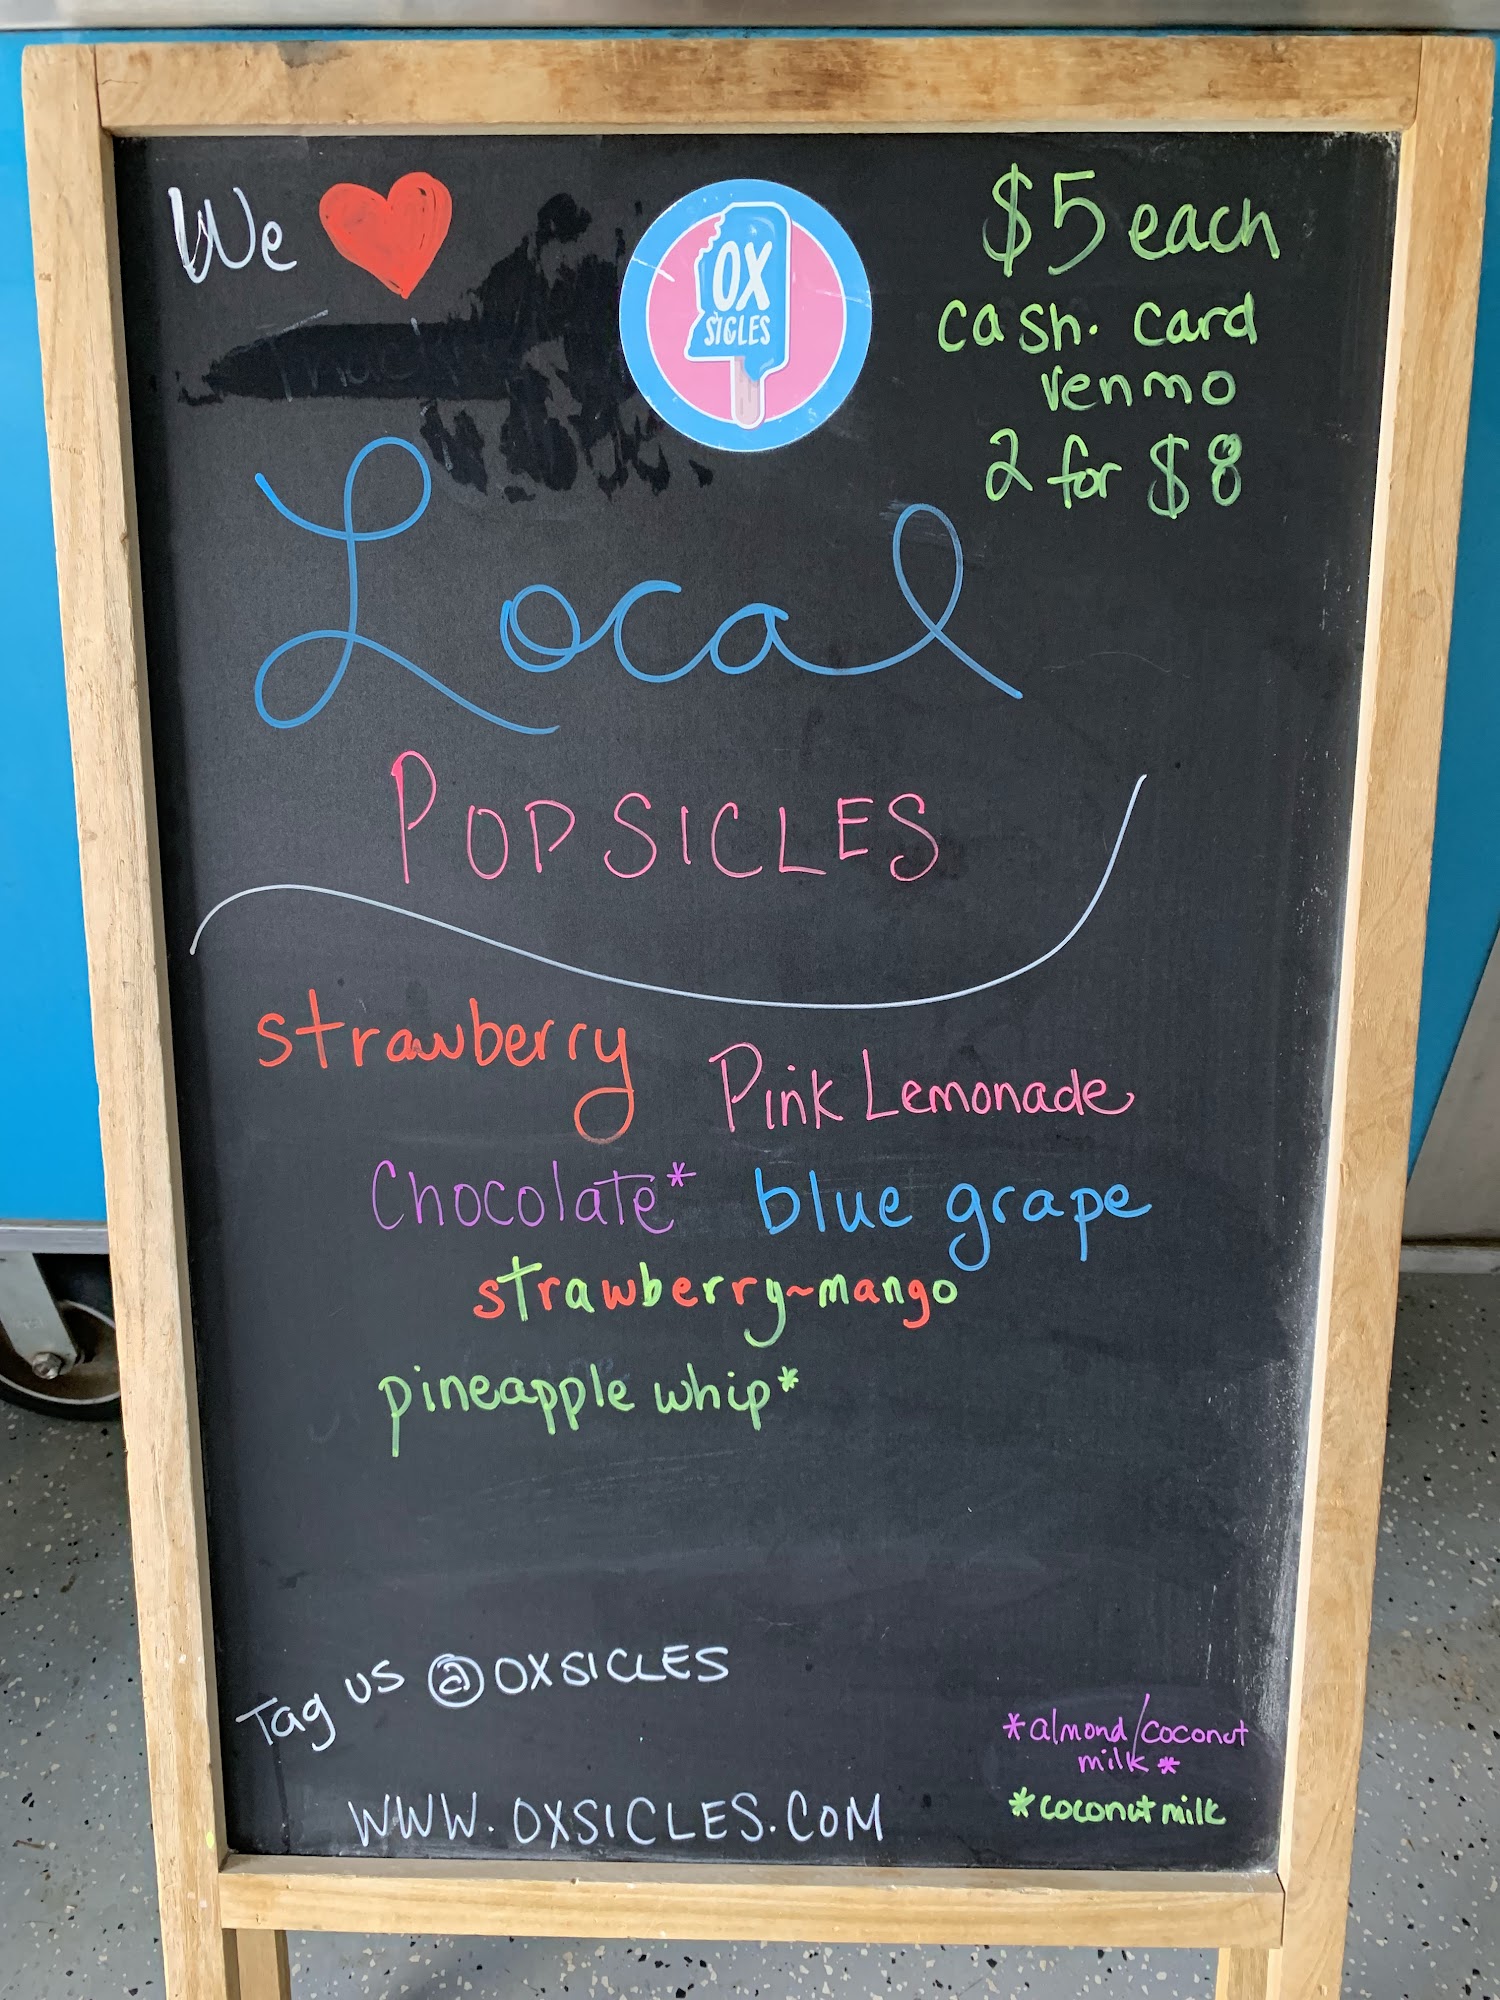 We
OX
SICLES
$5 each
cash. card
venmo
2 for $8
Local
POPSICLES
strawberry
Pink Lemonade
Chocolate* blue grape
strawberry~mango
pineapple whip*
Tag us @OXSICLES
WWW.OXSICLES.COM
*almond/coconut
milk*
*coconut milk